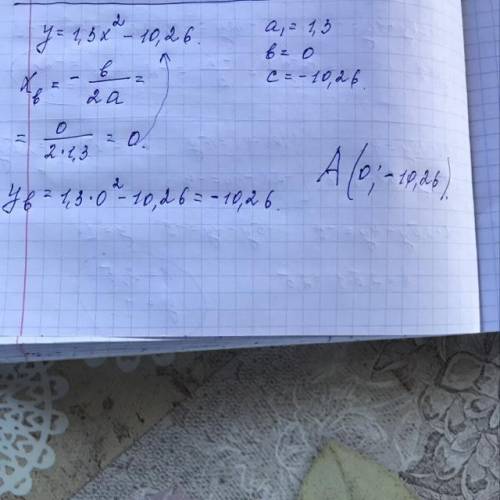 y = 1,3x² - 10,26.
a₁ = 1,3
в = 0
c = -10,26.
xв = - в/2a =
= 0/2·1,3 = 0.
yв = 1,3·0² - 10,26 = -10,26.
A(0; -10,26).